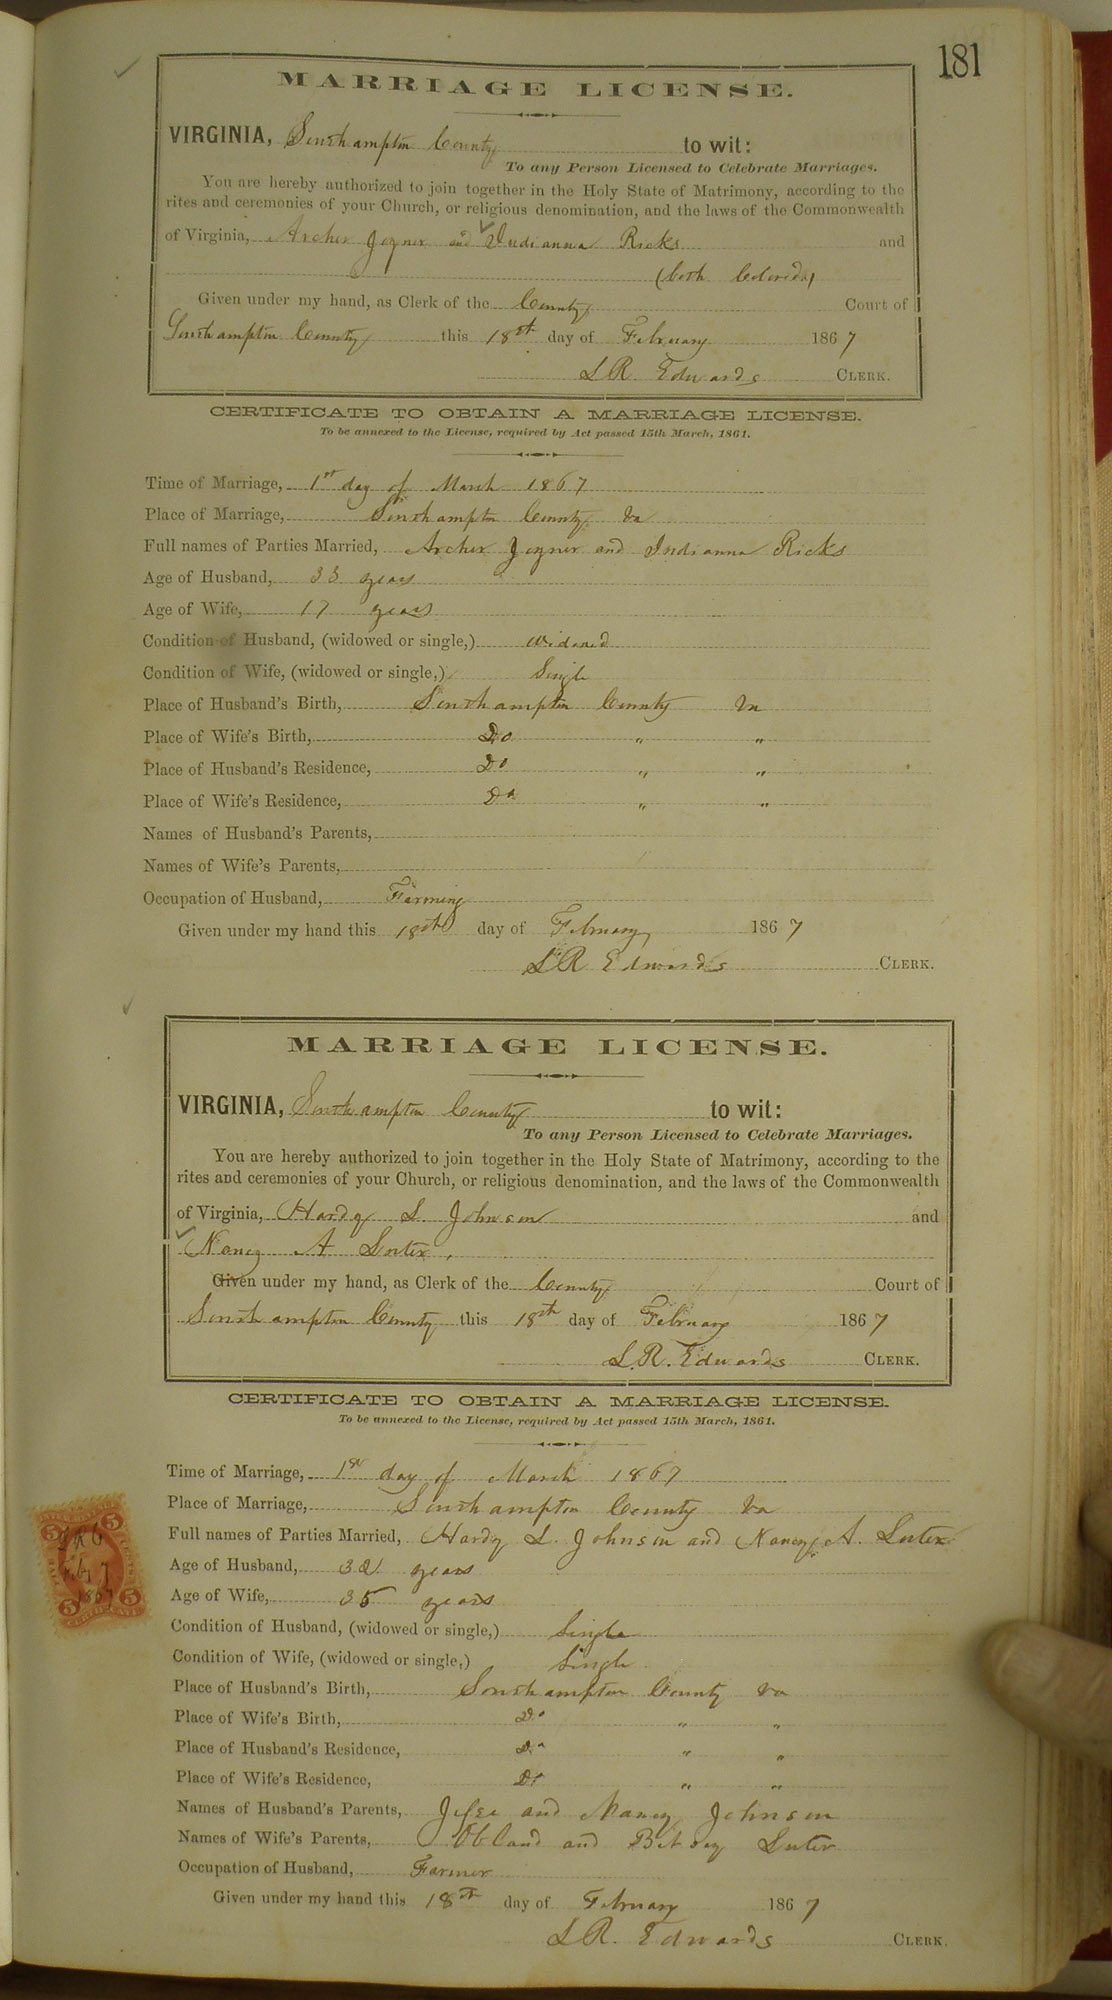 181
MARRIAGE LICENSE.
VIRGINIA, Southampton County to wit:
To any Person Licensed to Celebrate Marriages.
You are hereby authorized to join together in the Holy State of Matrimony, according to the
rites and ceremonies of your Church, or religious denomination, and the laws of the Commonwealth
of Virginia, Archer Joyner and Indianna Ricks and
(both Colored)
Given under my hand, as Clerk of the County Court of
Southampton County this 18th day of February 1867
L R Edwards CLERK.
CERTIFICATE TO OBTAIN A MARRIAGE LICENSE.
To be annexed to the License, required by Act passed 15th March, 1861.
Time of Marriage, 1st day of March 1867
Place of Marriage, Southampton County Va
Full names of Parties Married, Archer Joyner and Indianna Ricks
Age of Husband, 33 years
Age of Wife, 17 years
Condition of Husband, (widowed or single,) widowed
Condition of Wife, (widowed or single,) Single
Place of Husband's Birth, Southampton County Va
Place of Wife's Birth, Do " "
Place of Husband's Residence, Do " "
Place of Wife's Residence, Do " "
Names of Husband's Parents,
Names of Wife's Parents,
Occupation of Husband, Farming
Given under my hand this 18th day of February 1867
L R Edwards CLERK.
MARRIAGE LICENSE.
VIRGINIA, Southampton County to wit:
To any Person Licensed to Celebrate Marriages.
You are hereby authorized to join together in the Holy State of Matrimony, according to the
rites and ceremonies of your Church, or religious denomination, and the laws of the Commonwealth
of Virginia, Hardy L. Johnson and
Nancy A Luter.
Given under my hand, as Clerk of the County Court of
Southampton County this 18th day of February 1867
L. R. Edwards CLERK.
CERTIFICATE TO OBTAIN A MARRIAGE LICENSE.
To be annexed to the License, required by Act passed 15th March, 1861.
Time of Marriage, 1st day of March 1867
Place of Marriage, Southampton County Va
Full names of Parties Married, Hardy L. Johnson and Nancy A. Luter
Age of Husband, 32 years
Age of Wife, 35 years
Condition of Husband, (widowed or single,) Single
Condition of Wife, (widowed or single,) Single
Place of Husband's Birth, Southampton County Va
Place of Wife's Birth, Do " "
Place of Husband's Residence, Do " "
Place of Wife's Residence, Do " "
Names of Husband's Parents, Jesse and Nancy Johnson
Names of Wife's Parents, and Betsey Luter
Occupation of Husband, Farmer
Given under my hand this 18th day of February 1867
L R. Edwards CLERK.
5 5
1867
5 5